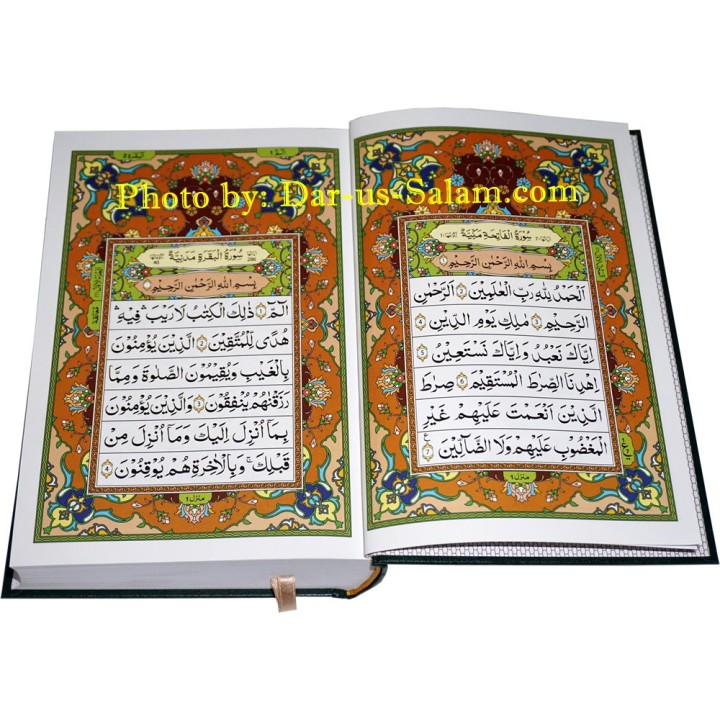 Photo by: Dar-us-Salam.com
سُوْرَةُ الْفَاتِحَةِ مَكِّيَّةٌ
بِسْمِ اللهِ الرَّحْمٰنِ الرَّحِيْمِ ١
اَلْحَمْدُ لِلّٰهِ رَبِّ الْعٰلَمِيْنَ ٢ الرَّحْمٰنِ
الرَّحِيْمِ ٣ مٰلِكِ يَوْمِ الدِّيْنِ ٤
اِيَّاكَ نَعْبُدُ وَاِيَّاكَ نَسْتَعِيْنُ ٥
اِهْدِنَا الصِّرَاطَ الْمُسْتَقِيْمَ ٦ صِرَاطَ
الَّذِيْنَ اَنْعَمْتَ عَلَيْهِمْ غَيْرِ
الْمَغْضُوْبِ عَلَيْهِمْ وَلَا الضَّآلِّيْنَ ٧
منزل ١
البقرة ٢
الٓمّٓ ١
سُوْرَةُ الْبَقَرَةِ مَدَنِيَّةٌ
بِسْمِ اللهِ الرَّحْمٰنِ الرَّحِيْمِ
الٓمّٓ ١ ذٰلِكَ الْكِتٰبُ لَا رَيْبَ فِيْهِ
هُدًى لِّلْمُتَّقِيْنَ ٢ الَّذِيْنَ يُؤْمِنُوْنَ
بِالْغَيْبِ وَيُقِيْمُوْنَ الصَّلٰوةَ وَمِمَّا
رَزَقْنٰهُمْ يُنْفِقُوْنَ ٣ وَالَّذِيْنَ يُؤْمِنُوْنَ
بِمَآ اُنْزِلَ اِلَيْكَ وَمَآ اُنْزِلَ مِنْ
قَبْلِكَ وَبِالْاٰخِرَةِ هُمْ يُوْقِنُوْنَ ٤
منزل ١